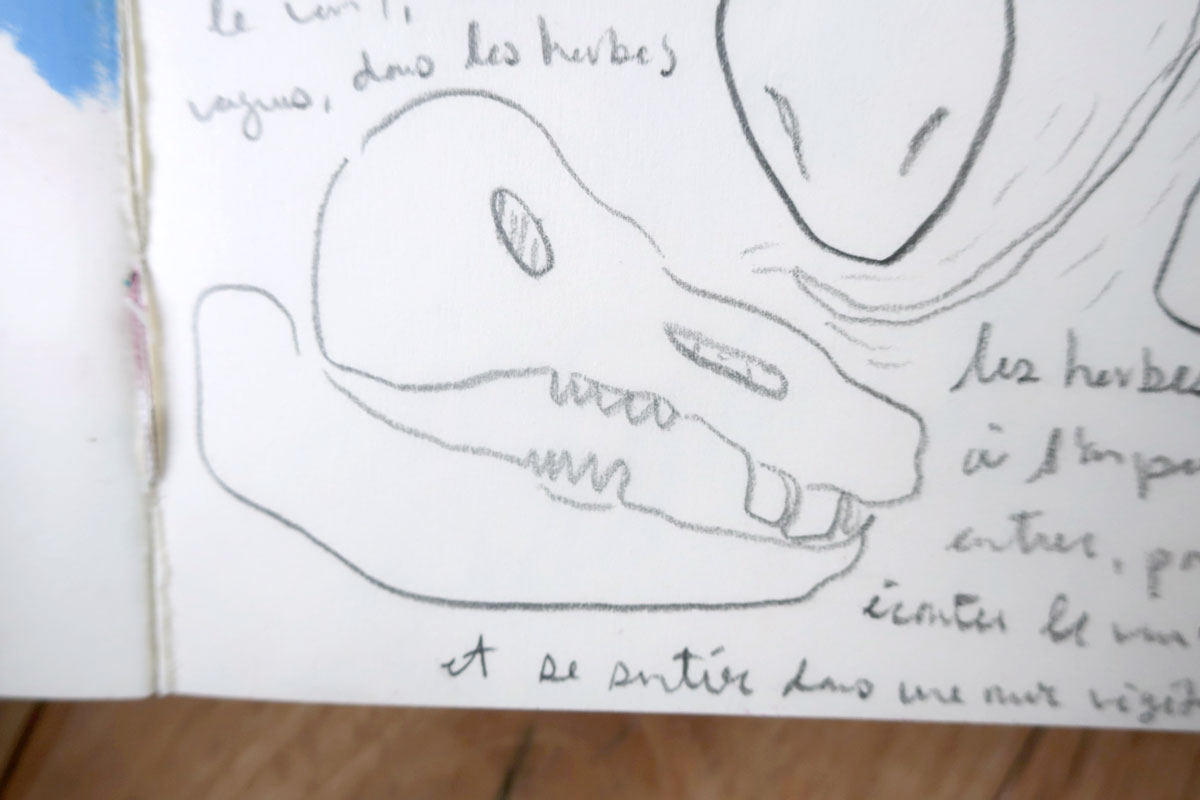 le vent,
vagues, dans les herbes
les herbes
à l'
entrer,
écouter le
et se sentir dans une mer